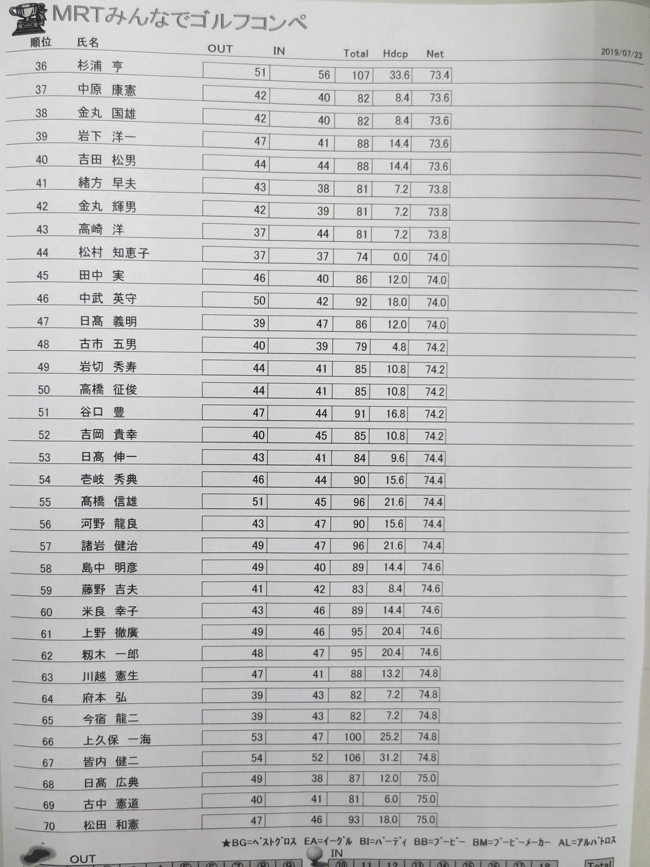 MRTみんなでゴルフコンペ
順位 氏名 OUT IN Total Hdcp Net 2019/07/23
36 杉浦 亨 51 56 107 33.6 73.4
37 中原 康憲 42 40 82 8.4 73.6
38 金丸 国雄 42 40 82 8.4 73.6
39 岩下 洋一 47 41 88 14.4 73.6
40 吉田 松男 44 44 88 14.4 73.6
41 緒方 早夫 43 38 81 7.2 73.8
42 金丸 輝男 42 39 81 7.2 73.8
43 高崎 洋 37 44 81 7.2 73.8
44 松村 知恵子 37 37 74 0.0 74.0
45 田中 実 46 40 86 12.0 74.0
46 中武 英守 50 42 92 18.0 74.0
47 日髙 義明 39 47 86 12.0 74.0
48 古市 五男 40 39 79 4.8 74.2
49 岩切 秀寿 44 41 85 10.8 74.2
50 高橋 征俊 44 41 85 10.8 74.2
51 谷口 豊 47 44 91 16.8 74.2
52 吉岡 貴幸 40 45 85 10.8 74.2
53 日髙 伸一 43 41 84 9.6 74.4
54 壱岐 秀典 46 44 90 15.6 74.4
55 髙橋 信雄 51 45 96 21.6 74.4
56 河野 龍良 43 47 90 15.6 74.4
57 諸岩 健治 49 47 96 21.6 74.4
58 島中 明彦 49 40 89 14.4 74.6
59 藤野 吉夫 41 42 83 8.4 74.6
60 米良 幸子 43 46 89 14.4 74.6
61 上野 徹廣 49 46 95 20.4 74.6
62 籾木 一郎 48 47 95 20.4 74.6
63 川越 憲生 47 41 88 13.2 74.8
64 府本 弘 39 43 82 7.2 74.8
65 今宿 龍二 39 43 82 7.2 74.8
66 上久保 一海 53 47 100 25.2 74.8
67 皆内 健二 54 52 106 31.2 74.8
68 日髙 広典 49 38 87 12.0 75.0
69 古中 憲道 40 41 81 6.0 75.0
70 松田 和憲 47 46 93 18.0 75.0
★BG=ベストグロス EA=イーグル BI=バーディ BB=ブービー BM=ブービーメーカー AL=アルバトロス
OUT IN
⑩ 11 12 ⑬ 18 Total